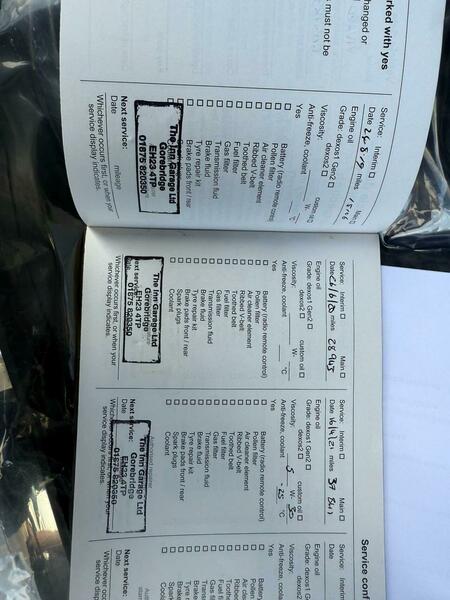 rked with yes
hanged or
must not be
Service: Interim ☐
Date miles
Engine oil
Grade: dexos1 Gen2 ☐
Viscosity: dexos2 ☐
Anti-freeze, coolant °C
Yes
☐ Battery (radio remote control)
☐ Pollen filter
☐ Air cleaner element
☐ Ribbed V-belt
☐ Toothed belt
☐ Fuel filter
☐ Gas filter
☐ Transmission fluid
☐ Brake fluid
☐ Tyre repair kit
☐ Brake pads front / rear
The Inn Garage Ltd
Gorebridge
EH23 4TP
01875 820350
Next service:
Date mileage
Whichever occurs first, or when your
service display indicates.
Service: Interim ☐ Main ☐
Date miles 28 943
Engine oil
Grade: dexos1 Gen2 ☐ custom oil ☐
Viscosity: dexos2 ☐ W-
Anti-freeze, coolant °C
Yes
☐ Battery (radio remote control)
☐ Pollen filter
☐ Air cleaner element
☐ Ribbed V-belt
☐ Toothed belt
☐ Fuel filter
☐ Gas filter
☐ Transmission fluid
☐ Brake fluid
☐ Tyre repair kit
☐ Brake pads front / rear
☐ Spark plugs
☐ Coolant
The Inn Garage Ltd
Gorebridge
EH23 4TP
01875 820350
Next service:
Whichever occurs first, or when your
service display indicates.
Service: Interim ☐ Main ☐
Date 16/4/21 miles
Engine oil
Grade: dexos1 Gen2 ☐ custom oil ☐
Viscosity: dexos2 ☐ 5 W- 30
Anti-freeze, coolant -25 °C
Yes
☐ Battery (radio remote control)
☐ Pollen filter
☐ Air cleaner element
☐ Ribbed V-belt
☐ Toothed belt
☐ Fuel filter
☐ Gas filter
☐ Transmission fluid
☐ Brake fluid
☐ Tyre repair kit
☐ Brake pads front / rear
☐ Spark plugs
☐ Coolant
The Inn Garage Ltd
Gorebridge
EH23 4TP
01875 820350
Next service:
Date
Whichever occurs first, or when your
service display indicates.
Service conf
Service: Interim
Date
Engine oil
Grade: dexos
Viscosity: dexos
Anti-freeze, coo
Yes
☐ Battery
☐ Pollen
☐ Air cle
☐ Ribbed
☐ Toothe
☐ Fuel filt
☐ Gas filt
☐ Transm
☐ Brake
☐ Tyre re
☐ Brake
☐ Spark
☐ Coolan
Next service:
Date
Whichever occ
service display